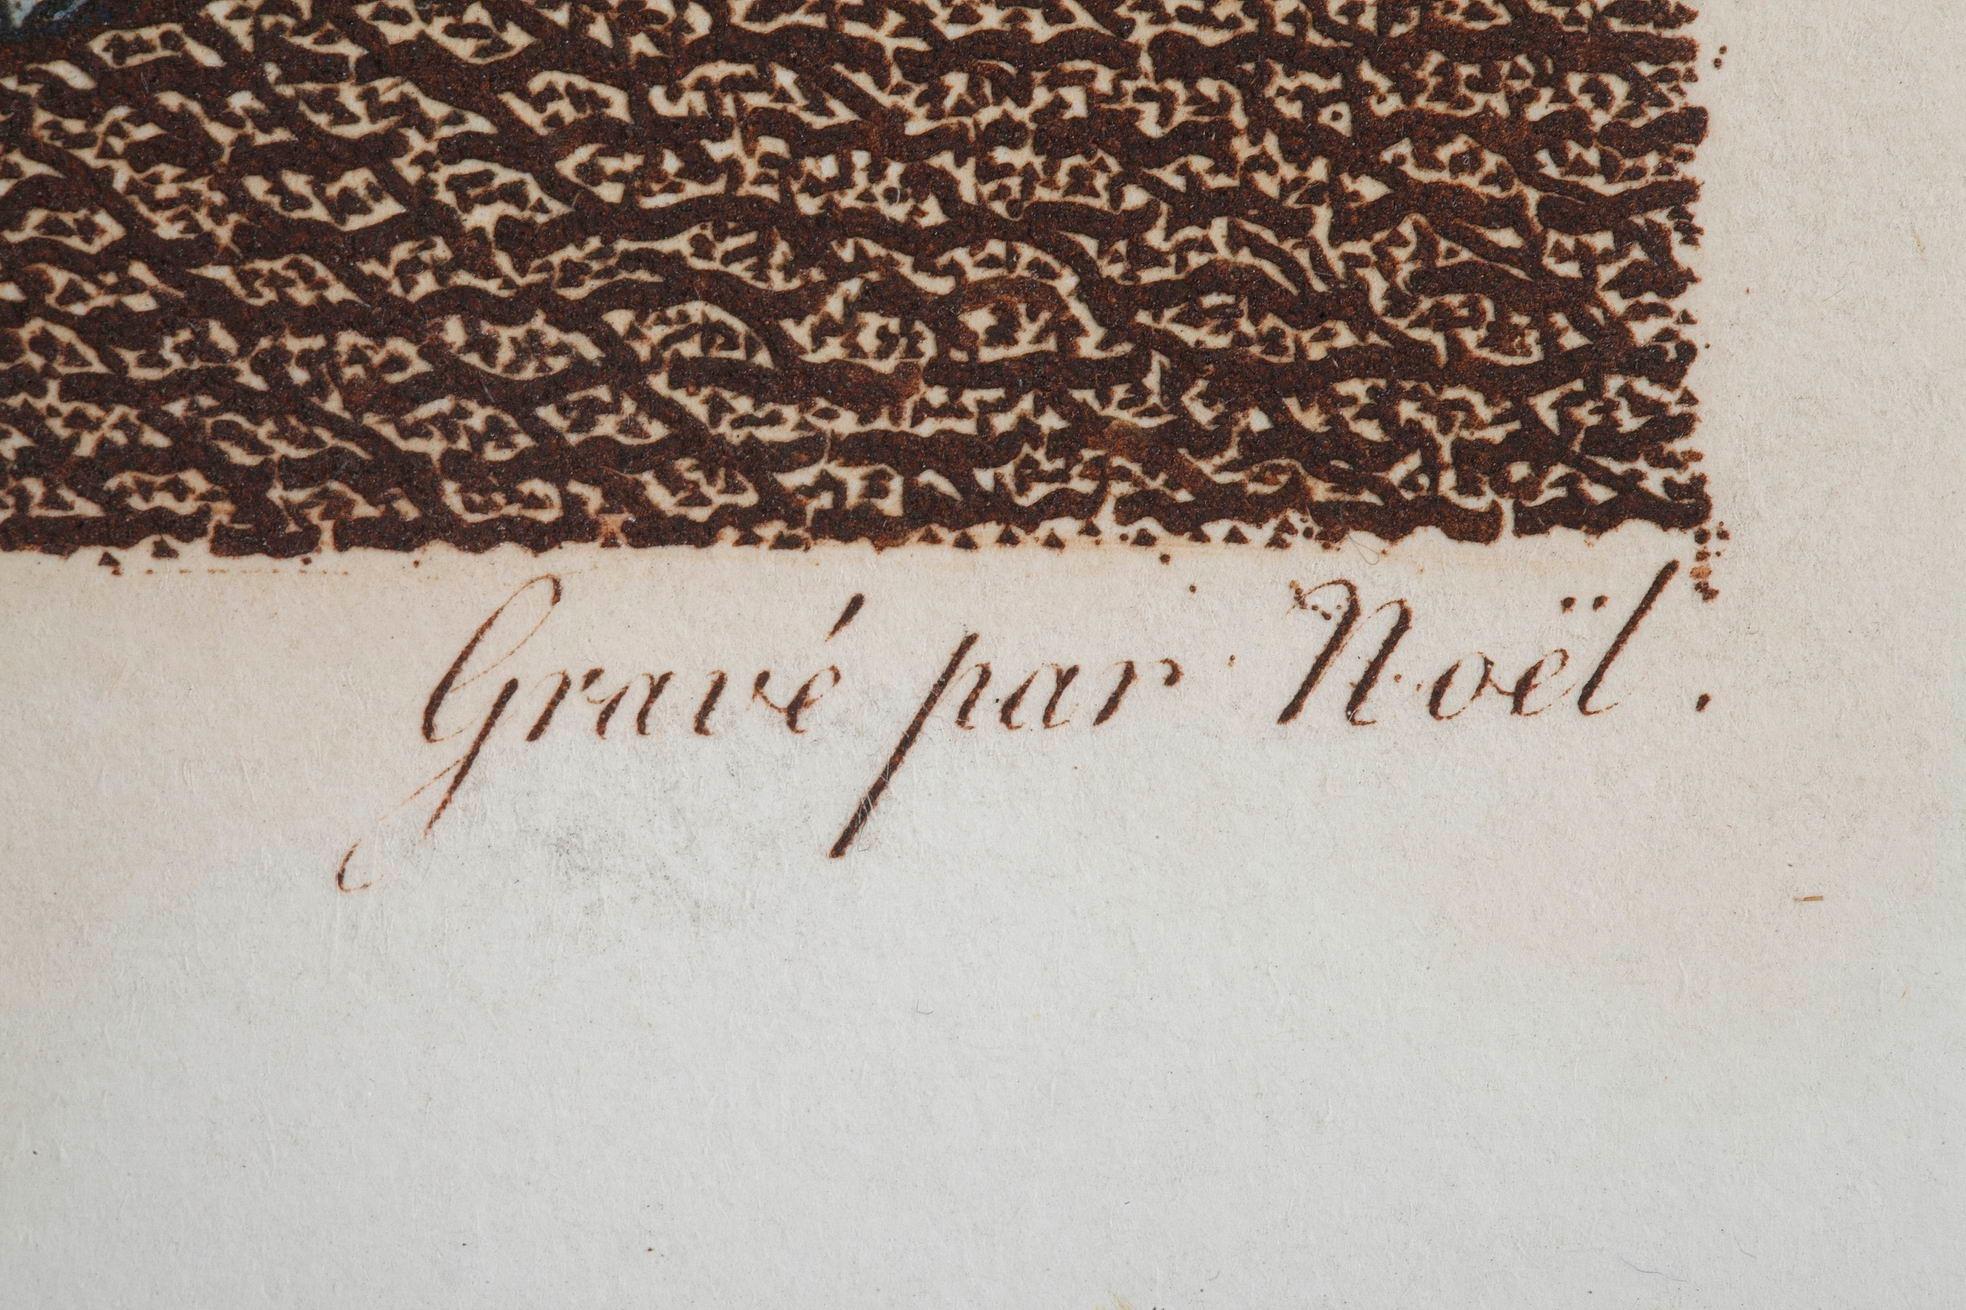 Gravé par Noël.